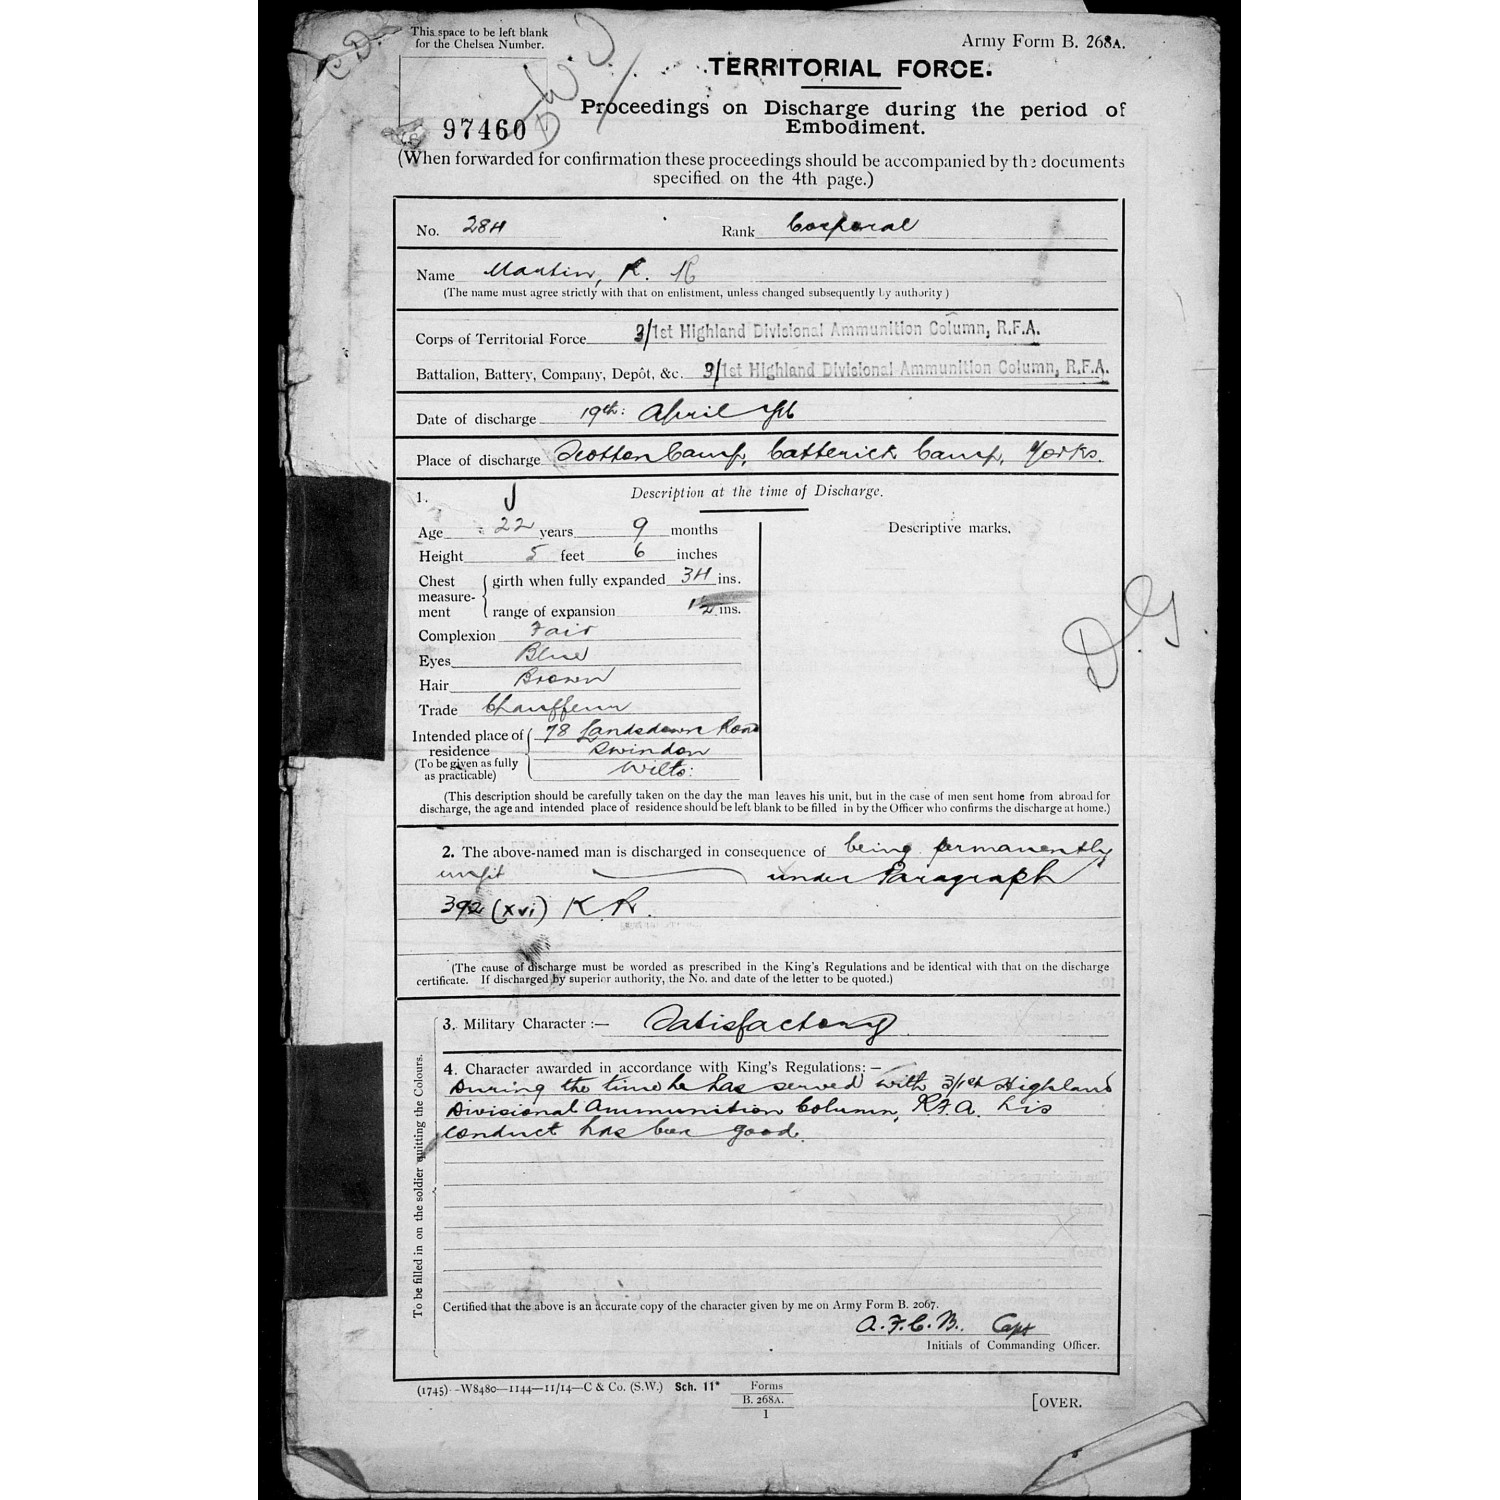 This space to be left blank
for the Chelsea Number.
Army Form B. 268A.
TERRITORIAL FORCE.
Proceedings on Discharge during the period of
Embodiment.
97460
(When forwarded for confirmation these proceedings should be accompanied by the documents
specified on the 4th page.)
No. 284 Rank Corporal
Name Martin, R. R
(The name must agree strictly with that on enlistment, unless changed subsequently by authority)
Corps of Territorial Force 3/1st Highland Divisional Ammunition Column, R.F.A.
Battalion, Battery, Company, Depôt, &c. 3/1st Highland Divisional Ammunition Column, R.F.A.
Date of discharge 19th: April
Place of discharge Scotton Camp, Catterick Camp, Yorks.
1. Description at the time of Discharge.
Age 22 years 9 months
Descriptive marks.
Height 5 feet 6 inches
Chest measurement girth when fully expanded 34 ins.
range of expansion 1½ ins.
Complexion Fair
Eyes Blue
Hair Brown
Trade Chauffeur
Intended place of residence 78 Landsdown Road
Swindon
(To be given as fully as practicable) Wilts:
D.G.
(This description should be carefully taken on the day the man leaves his unit, but in the case of men sent home from abroad for
discharge, the age and intended place of residence should be left blank to be filled in by the Officer who confirms the discharge at home.)
2. The above-named man is discharged in consequence of being permanently
unfit under Paragraph
392 (xvi) K.R.
(The cause of discharge must be worded as prescribed in the King's Regulations and be identical with that on the discharge
certificate. If discharged by superior authority, the No. and date of the letter to be quoted.)
To be filled in on the soldier quitting the Colours.
3. Military Character :— Satisfactory
4. Character awarded in accordance with King's Regulations: —
During the time he has served with 3/1st Highland
Divisional Ammunition Column, R.F.A. his
conduct has been good.
Certified that the above is an accurate copy of the character given by me on Army Form B. 2067.
A.F.C.B. Capt
Initials of Commanding Officer.
(1745) -W8480—1144—11/14—C & Co. (S.W.) Sch. 11* Forms
B. 268A.
1
[OVER.